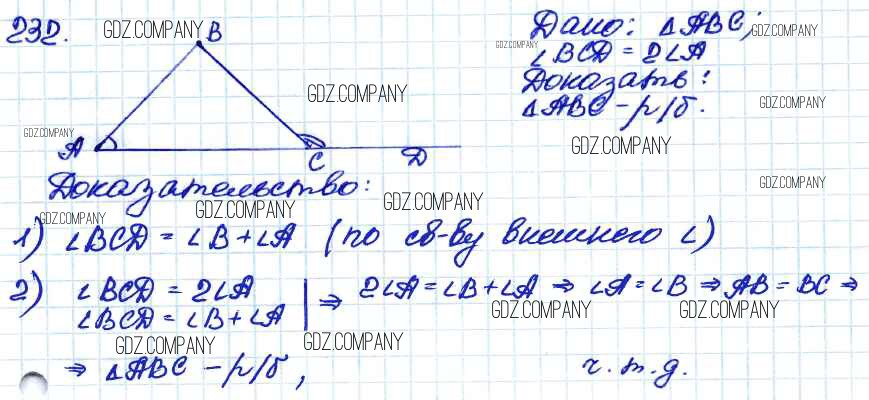 232.
GDZ.COMPANY
B
Дано: △ABC;
GDZ.COMPANY
GDZ.COMPANY
∠BCD = 2∠A
Доказать:
GDZ.COMPANY
△ABC – р/б.
GDZ.COMPANY
GDZ.COMPANY
A
C
D
GDZ.COMPANY
Доказательство:
GDZ.COMPANY
GDZ.COMPANY
GDZ.COMPANY
GDZ.COMPANY
1) ∠BCD = ∠B + ∠A (по св-ву внешнего ∠)
2) ∠BCD = 2∠A
∠BCD = ∠B + ∠A | ⇒ 2∠A = ∠B + ∠A ⇒ ∠A = ∠B ⇒ AB = BC ⇒
GDZ.COMPANY
GDZ.COMPANY
GDZ.COMPANY
GDZ.COMPANY
⇒ △ABC – р/б, ч.т.д.